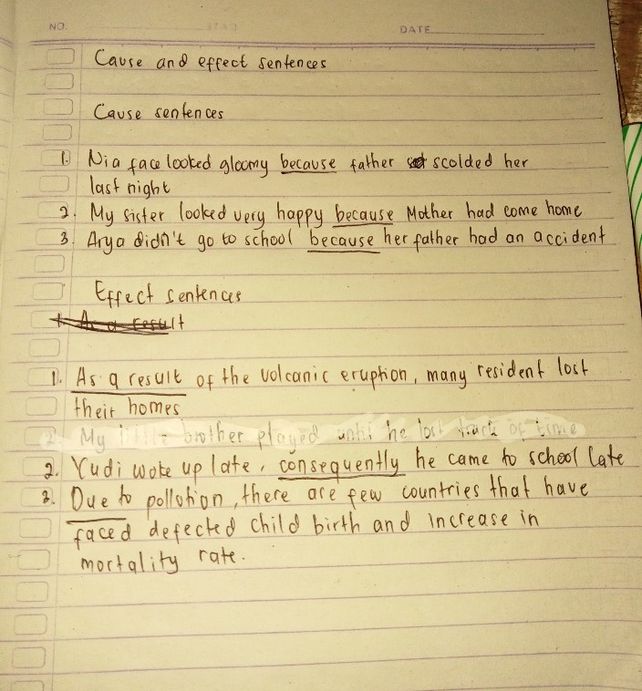 NO.
DATE
Cause and effect sentences
Cause sentences
1. Nia face looked gloomy because father scolded her
last night
2. My sister looked very happy because Mother had come home
3. Arya didn't go to school because her father had an accident
Effect sentences
1. As a result
1. As a result of the volcanic eruption, many resident lost
their homes
2. My little brother played until he lost track of time
2. Yudi woke up late, consequently he came to school late
3. Due to pollution, there are few countries that have
faced defected child birth and increase in
mortality rate.